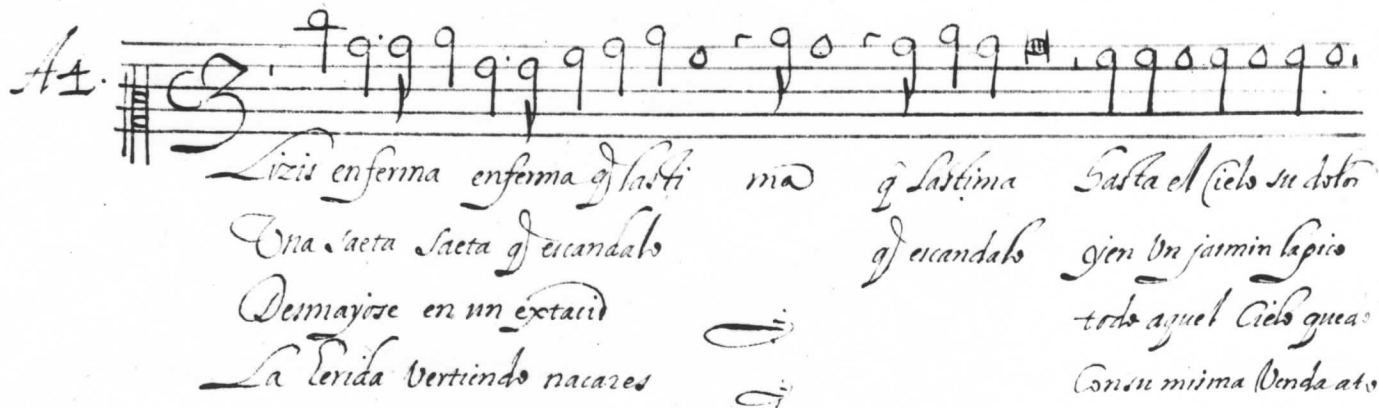 A4.
Lizis enferma enferma q̃ lasti ma q̃ lastima hasta el Cielo su dolor
Una saeta saeta q̃ escandalo q̃ escandalo y en un jasmin la pico
Desmayose en un extacis todo aquel Cielo quedo
La herida vertiendo nacares Con su misma Venda ato